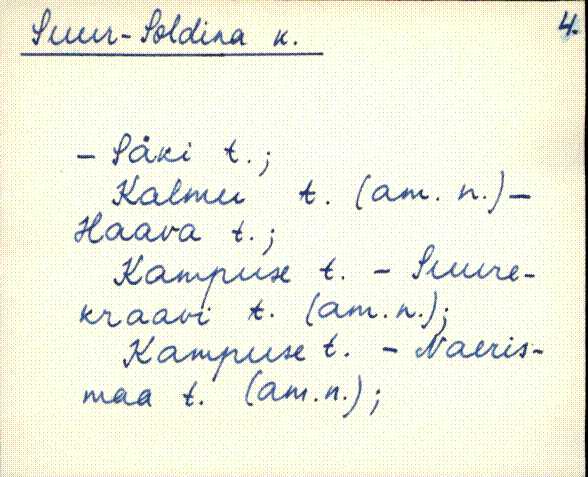 Suur-Soldina k.
4.
- Säki t.;
Kalmu t. (am. n.) -
Haava t.;
Kampuse t. - Suure-
kraavi t. (am. n.);
Kampuse t. - Naeris-
maa t. (am. n.);